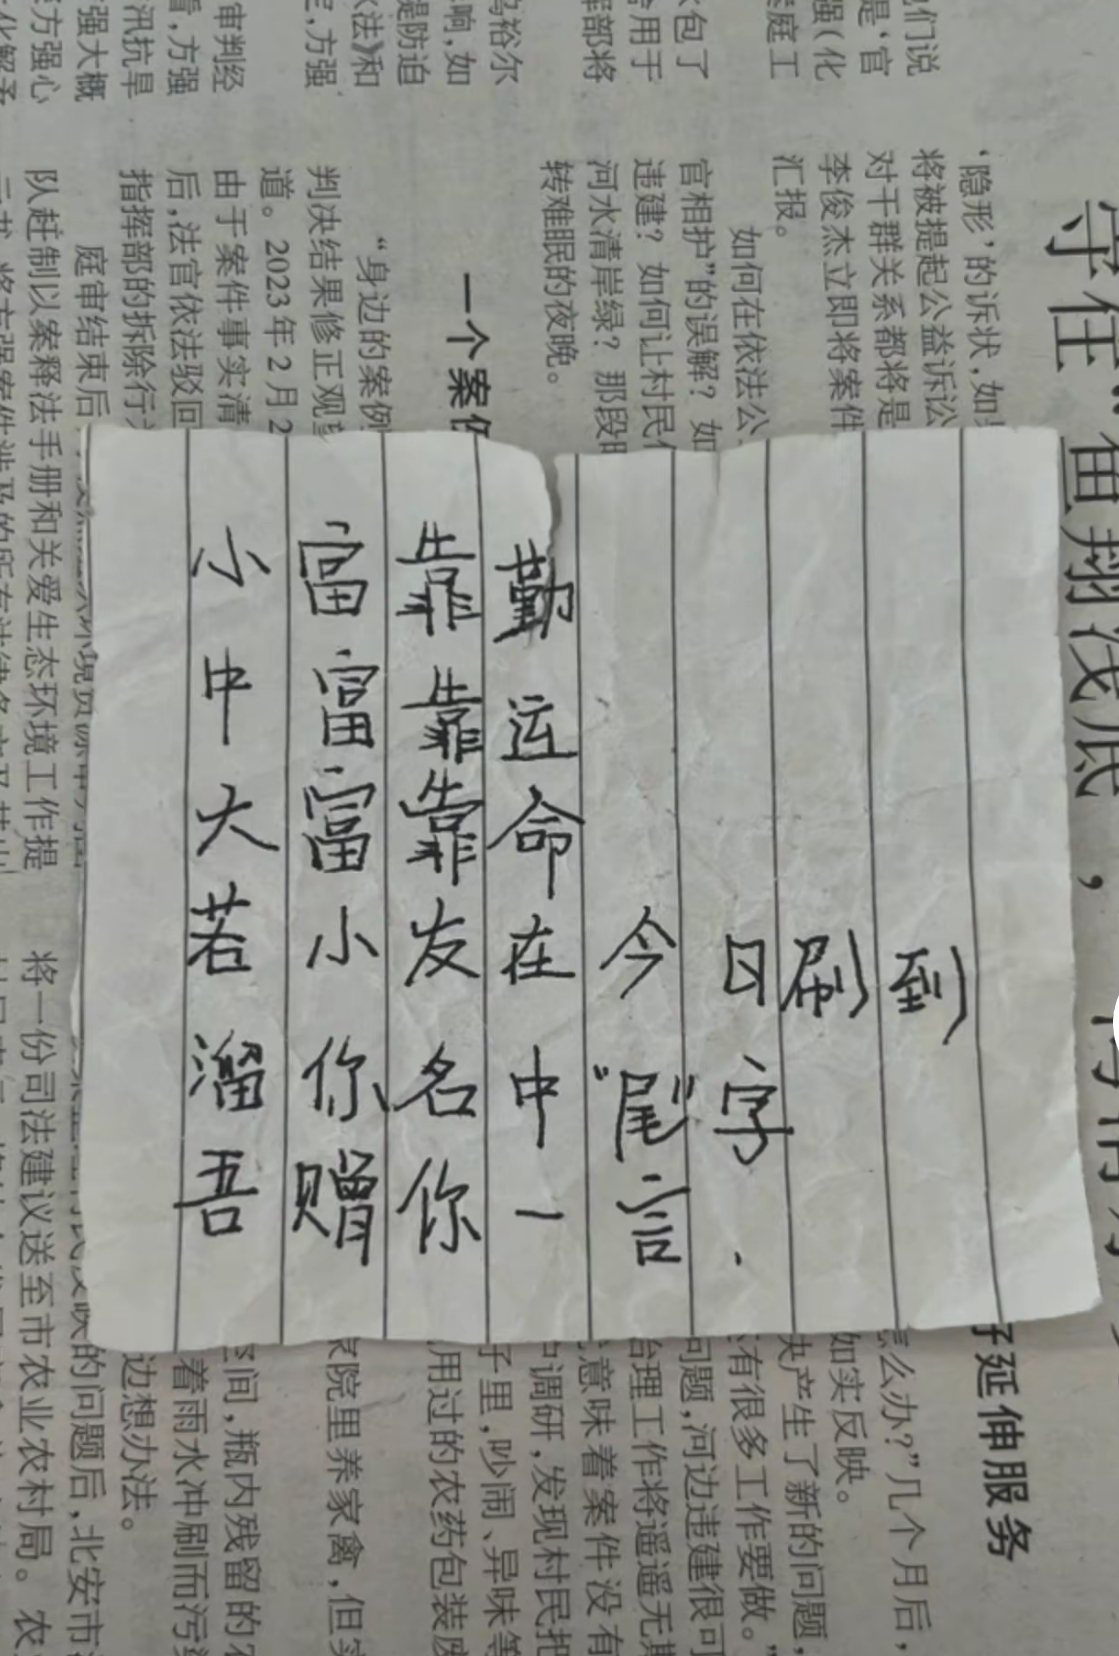 小富靠勤
中富靠运
大富靠命
若小友在今日刷到
溜你名中“尾”字
吾赠你一言.
守住
鱼翔浅底，
‘隐形’的诉状，如
将被提起公益诉讼
对干群关系都将是
李俊杰立即将案件
汇报。
如何在依法公
官相护”的误解？如
违建？如何让村民
河水清岸绿？那段
转难眠的夜晚。
一个案
“身边的案例
判决结果修正观
道。2023年2月2
由于案件事实清
后，法官依法驳回
指挥部的拆除行
庭审结束后
队赶制以案释法手册和关爱生态环境工作提
们说
是‘官
强(化
庭工
包了
用于
挥部将
乌裕尔
响，如
堤防迫
水法》和
方强
审判经
看，方强
汛抗旱
强大概
方强心
延伸服务
怎么办？”几个月后，
如实反映。
产生了新的问题，
有很多工作要做。”
问题，河边违建很可
治理工作将遥遥无期
意味着案件没有
调研，发现村民把
子里，吵闹、异味等
用过的农药包装废
家院里养家禽，但
间，瓶内残留的农
着雨水冲刷而污
边想办法。
的问题后，北安市
将一份司法建议送至市农业农村局。农